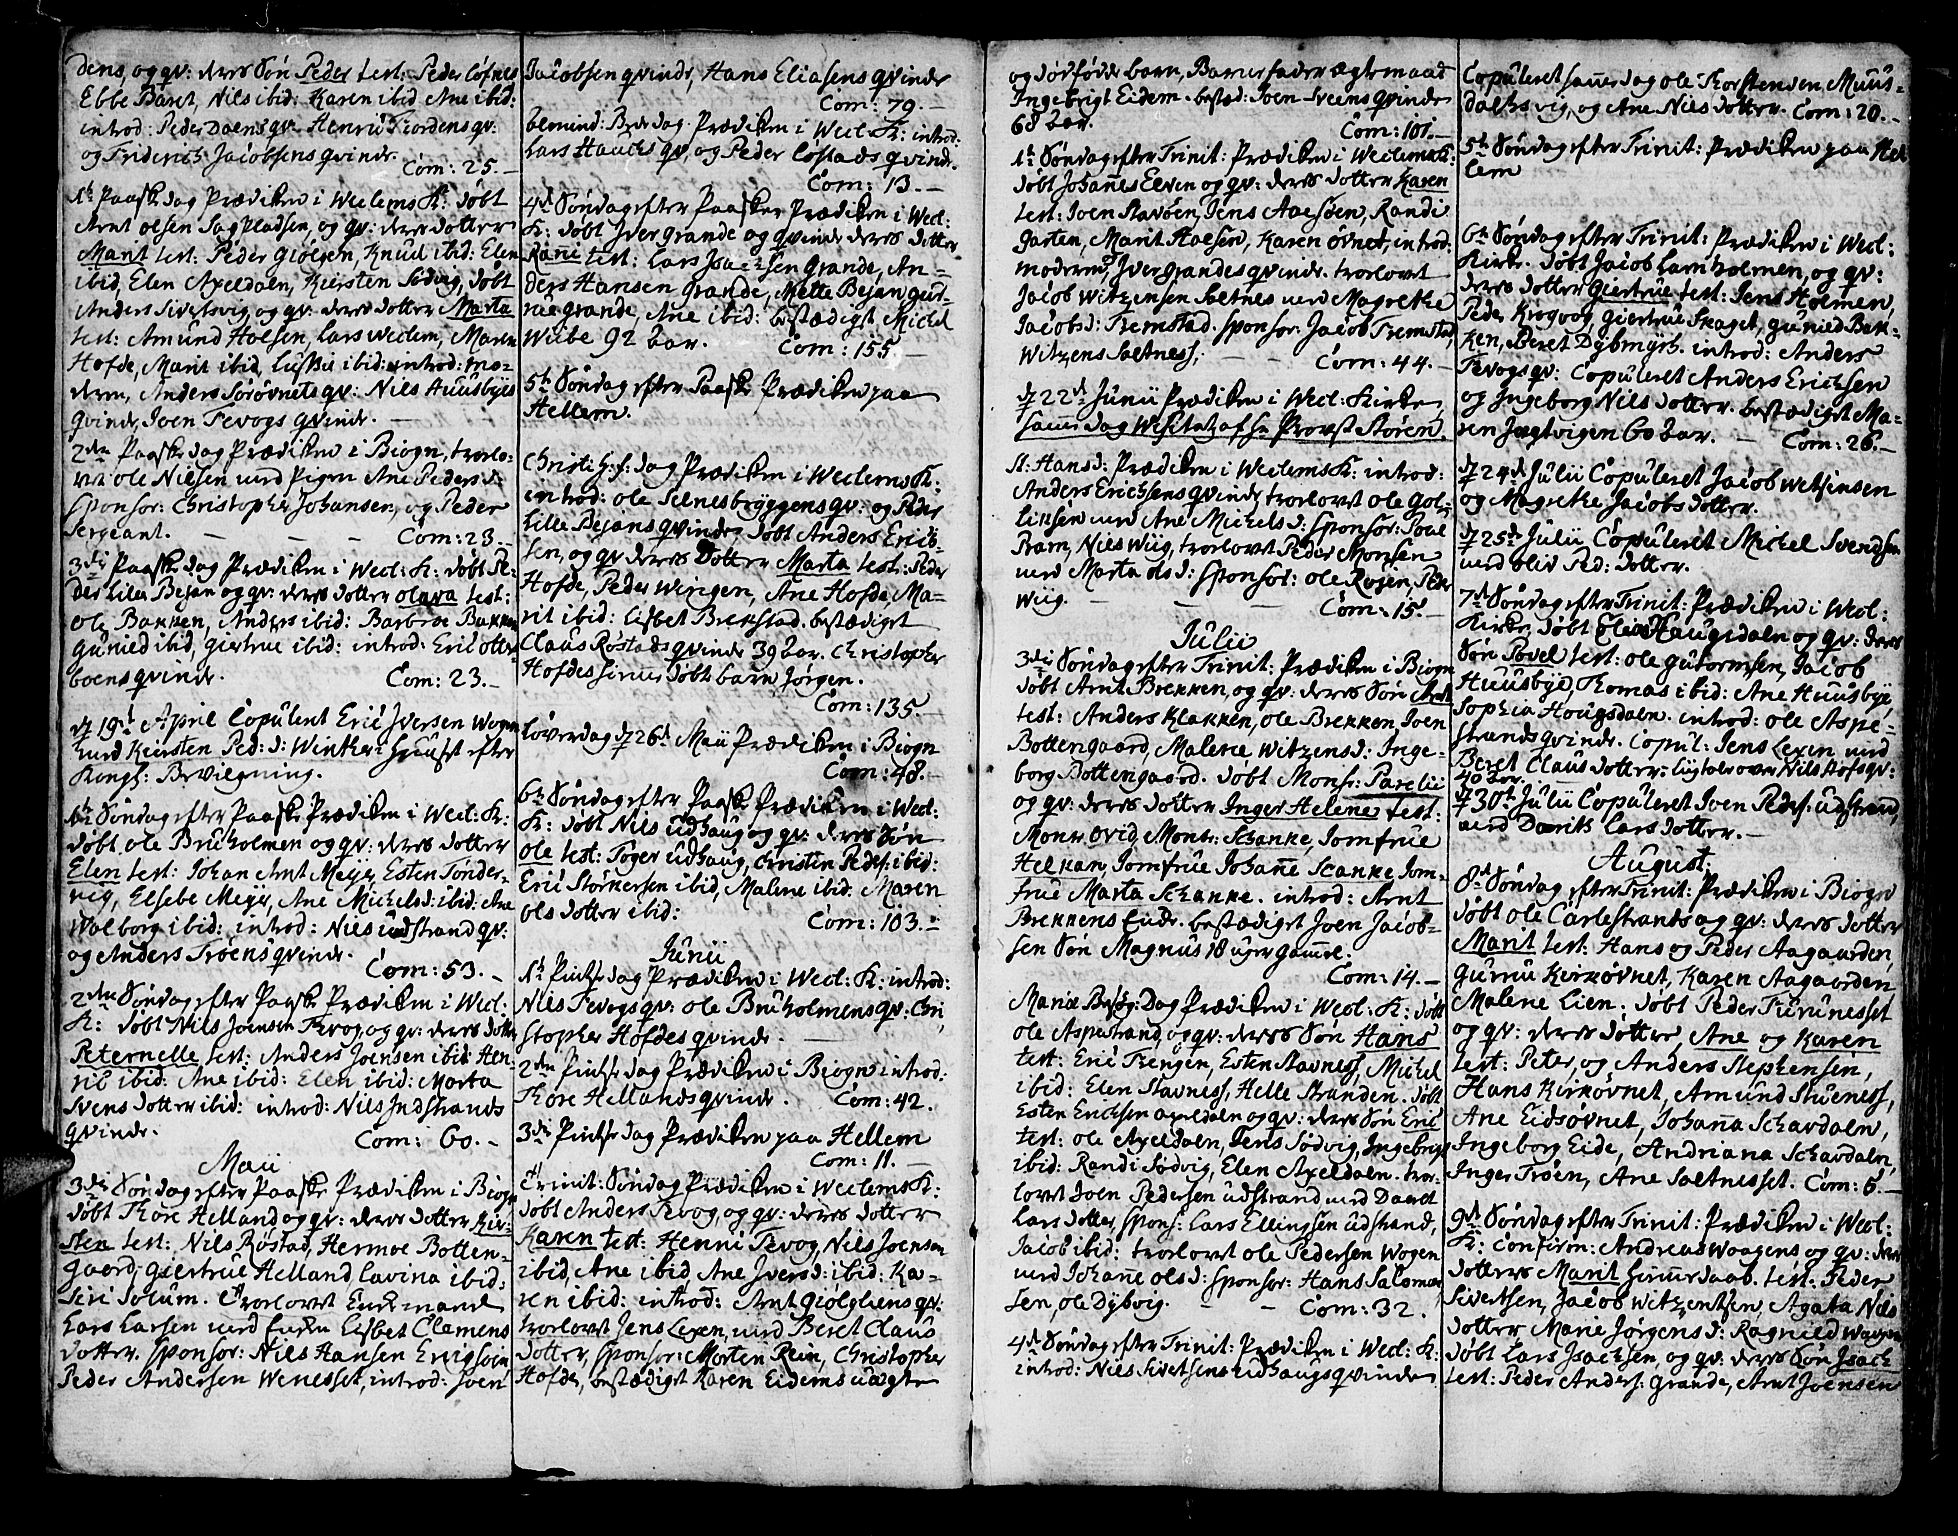 dens, og qv: deres Søn Peder test: Peder Løfnes
Ebbe Baret, Nils ibid: Karen ibid Ane ibid:
introd: Peder Daensqv: Henric Fiordensqv:
og Friderich Jacobsens qvinde.
Com: 25.
1te Paaske dag Prædiken i Wedlems K: døbt
Arnt olsen Sagpladsen, og qv: deres dotter
Marit test: Peder Giølgen, Knud ibid: Elen
ibid, Elen Axeldalen, Kiersten Sødvig, døbt
Anders Sivertsvig og qv: deres dotter Marta
test: Amund Hoesen, Lars Wedem, Maren
Hofde, Marit ibid, ibid: introd: mo-
deren, Anders Sørøvnets qv: Nils Huusbyes
qvinde, Joen Fevogs qvinde.
2den Paaske dag Prædiken i Biogn, trorlo-
vet ole Nielsen med Pigen Ane Peders d:
Sponsor: Christopher Johansen, og Peder
Sergeant. Com: 23.
3die Paaske dag Prædiken i Wed: K: døbt Pe-
der Lilea Bejan og qv: deres dotter olava test:
ole Bakken, Anders ibid: Barbroe Bakken
Gunied ibid, giertrue ibid: introd: Eric otter-
boens qvinde. Com: 23.
d 19de April Copuleret Eric Iversen Wogen
med Kiersten Ped: d: Winther efter
Kongl: Bevilgning.
1te Søndag efter Paaske Prædiken i Wed: K:
døbt ole Bruholmen og qv: deres dotter
Elen test: Johan Arnt Meyer Esten Tønder-
vig, Elsebe Meyer, Ane Michels d: ibid: Ane
Walborg ibid: introd: Nils indstrand qv:
og Anders Trøens qvinde.
Com: 53.
2den Søndag efter Paaske Prædiken i Wed:
K: døbt Nils Joensen Fevog og qv: deres dotter
Peternelle test: Anders Joensen ibid: Hen-
ric ibid: Ane ibid: Elen ibid: Marta
Svens dotter ibid: introd: Nils Indstrands
qvinde. Com: 60.
Maii
3die Søndag efter Paaske Prædiken i Biogn
døbt Thore Helland og qv: deres dotter Kier-
sten test: Nils Røstad, Hermoe Botten-
gaard, giertrue Helland Lavina ibid:
Siri Solum. trorlovet Enkemand
Lars Larsen med Enken Lisbet Clemens
dotter. Sponsor: Nils Hansen
Peder Andersen Wenesset, introd: Joen
Jacobsen qvinde, Hans Eliasens qvinde
Com: 79.
Alemind: Bededag. Prædiken i Wed: K: introd:
Lars Hauchs qv, og Peder Løstads qvinde.
Com: 13.
4de Søndag efter Paaske Prædiken i Wed:
K: døbt Iver Grande og qvinde deres dotter
Rani test: Lars Isachsen Grande, An-
ders Hansen Grande, Mette Bejan gur-
nie grande, Ane ibid: bestædiget Michel
Wiibe 92 aar. Com: 155.
5te Søndag efter Paaske Prædiken paa
Hellem.
Christi H: f: dag Prædiken i Wedlems K:
introd: ole Selnesbryggens qv: og Peder
Lille Bejans qvinde, døbt Anders Eric-
sen, og qv deres Dotter Marta test: Peder
Hofde, Peder Wingen, Ane Hofde, Ma-
rit ibid: Lisbet Brekstad. bestædiget
Claus Røstads qvinde 39 aar. Christopher
Hofdes døbt barn Jørgen.
Com: 135.
Løverdag d 26de Maii Prædiken i Biogn
Com: 48.
6te Søndag efter Paaske Prædiken i Wed:
K: døbt Nils Udhaug og qv: deres Søn
ole test: Toger Udhaug, Christen Peders: ibid:
Eric Størkersen ibid, Malene ibid: Maren
ols dotter ibid: Com: 103.
Junii
1te Pintse dag Prædiken i Wed: K: introd:
Nils Fevogs qv: ole Bruholmens qv: Chri
stopher Hofdes qvinde.
2den Pintse dag Prædiken i Biogn introd:
Thore Hellands qvinde. Com: 42.
3die Pintse dag Prædiken paa Hellem
Com: 11.
Trinit: Søndag Prædiken i Wedlems K:
døbt Anders Fevog, og qv: deres dotter
Karen test: Henni Fevog, Nils Joensen
ibid, Ane ibid, Ane Ivers d: ibid: Ka-
ren ibid: introd: Arnt giølgliens qv:
trorlovet Jens Lexen, med Beret Claus
dotter, Sponsor: Morten Rein, Christopher
Hofde, bestædiget Karen Eidems uægte
og dødfødde barn, Barnefader ægtemand
Ingebrigt Eidem. bestæd: Joen Sveens qvinde
68 aar. Com: 101.
1te Søndag efter Trinit: Prædiken i Wedlems K:
døbt Johannes Elven og qv: deres dotter Karen
test: Joen Stavøen, Jens Aaesøen, Randi
garten, Marit Hoesen, Karen øvnet, introd:
moderen, Iver Grandes qvinde. trorlovet
Jacob Witzensen Sætnes med Magrethe
Jacobsd: Fremstad. Sponsor: Jacob Fremstad,
Witzens Sætness, Com: 44.
d 22de Junii Prædiken i Wed: Kirke,
samme dag Visitatz af Hr Provst Støren.
St: Hansd: Prædiken i Wedlems K: introd:
Anders Erichsens qvinde, trorlovet ole Gol-
liksen med Ane Michels d: Sponsor: Poul
Pram, Niels Wiig, trorlovet Peder Monsen
med Marta olsd: Sponsor: ole Rosen, Peder
Wiig. Com: 15.
Julii
3die Søndag efter Trinit: Prædiken i Biogn
døbt Arnt Brekken, og qv: deres Søn Arnt
test: Anders Klakken, ole Brekken, Joen
Bottengaard, Malene Witzensd: Inge-
borg Bottengaard. døbt Monsr: Parelii
og qv: deres dotter Inger Helene test:
Monsr Ovid, Monsr: Schanke, Jomfrue
Helkan, Jomfrue Johanne Scanke, Jom-
frue Marta Schanke. introd: Arnt
Brekkens Enke. bestædiget Joen Jacob-
sen Søn Magnus 18 uger gammel.
Com: 14.
Mariæ Besøg: Dag Prædiken i Wed: K: døbt
ole Aspestrand, og qv: deres Søn Hans
test: Eric Frengen, Esten Stavness, Michel
ibid: Elen Stavness, Helle Stranden. døbt
Esten Erichsen axeldalen og qv: deres Søn Eric
test: ole Axeldalen, Jens Sødvig, Ingebrigt
ibid: Randi Sødvig, Elen Axeldalen. tror-
lovet Joen Pedersen udstrand med Daaret
Lars dotter, Spons: Lars Ellingsen Udstrand,
Jacob ibid: trorlovet ole Pedersen Wogen
med Johanne olsd: Sponsor: Hans Salomon
sen, ole Dybvig. Com: 32.
4de Søndag efter Trinit: Prædiken i Wed: K:
introd: Nils Sivertsens Udhaugs qvinde
Copuleret samme dag ole Thorstensen Muus-
dalhsvig, og Ane Nils dotter. Com: 20.
5te Søndag efter Trinit: Prædiken paa Hel
lem
6te Søndag efter Trinit: Prædiken i Wed:
Kirke. døbt Jacob Lamholmen, og qv:
deres dotter Giertrue test: Jens Holmen,
Peder Krogvog, giertrue Skaget, gunied Bak-
ken, Beret Dybmyr. introd: Anders
Fevogs qv: Copuleret Anders Erichsen
og Ingeborg Nils dotter. bestædiget Ma-
ren Jegtvigen 60 aar. Com: 26.
d 24de Julii Copuleret Jacob Wetzensen
og Magrethe Jacobs dotter.
d 25de Julii Copuleret Michel Svendsen
med oliv Ped: dotter.
7de Søndag efter Trinit: Prædiken i Wed:
Kirke, døbt Haugsdalen og qv: deres
Søn Povel test: ole gutormsen, Jacob
Huusbye, Thomas ibid: Ane Huusbye,
Sophia Hougsdalen. introd: ole Aspe-
strands qvinde. Copul: Jens Lexen med
Beret Claus dotter. over Nils Hofs qv:
40 aar.
d 30te Julii Copuleret Joen Peders: udstrand,
med Daaret Lars dotter.
August:
8de Søndag efter Trinit: Prædiken i Biogn
døbt ole Carlestrands og qv: deres dotter
Marit test: Hans og Peder Aagaarden,
gurnu Kirkøvnet, Karen Aagaarden
Malene Lien. døbt Peder Furunesset
og qv: deres dotter, Ane og Karen
test: Peter, og Anders Stephensen,
Hans Kirkøvnet, Amund Stueness,
Ane Eidsøvnet, Johanna Schavdalen,
Ingeborg Eide, Andriana Schavdalen,
Inger Trøen, Ane Sætnesset. Com: 5.
9de Søndag efter Trinit: Prædiken i Wed:
K: Confirm: Andreas Woagens og qv: deres
dotters Marit daab. test: Peder
Sivertsen, Jacob Witzentsen, Agata Nils
dotter, Marie Jørgens d: Ragnild Wogen
døbt Lars Isachsen, og qv: deres Søn Isach
test: Peder Anders: grande, Arnt Joensen